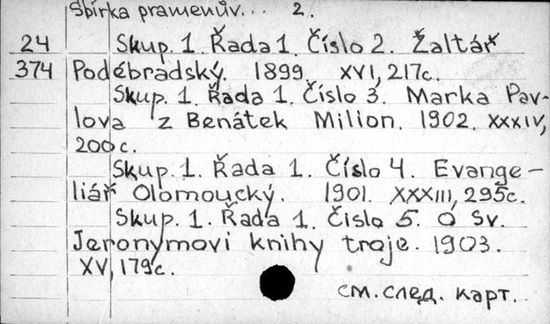 Sbírka pramenův... 2.
24 Skup. 1. Řada 1. Číslo 2. Žaltář
374 Poděbradský. 1899. XVI, 217c.
Skup. 1. Řada 1. Číslo 3. Marka Pav-
lova z Benátek Milion. 1902. XXXIV,
200c.
Skup. 1. Řada 1. Číslo 4. Evange-
liář Olomoucký. 1901. XXXIII, 295c.
Skup. 1. Řada 1. Čislo 5. O Sv.
Jeronymovi knihy troje. 1903.
XV, 179c.
см. след. карт.